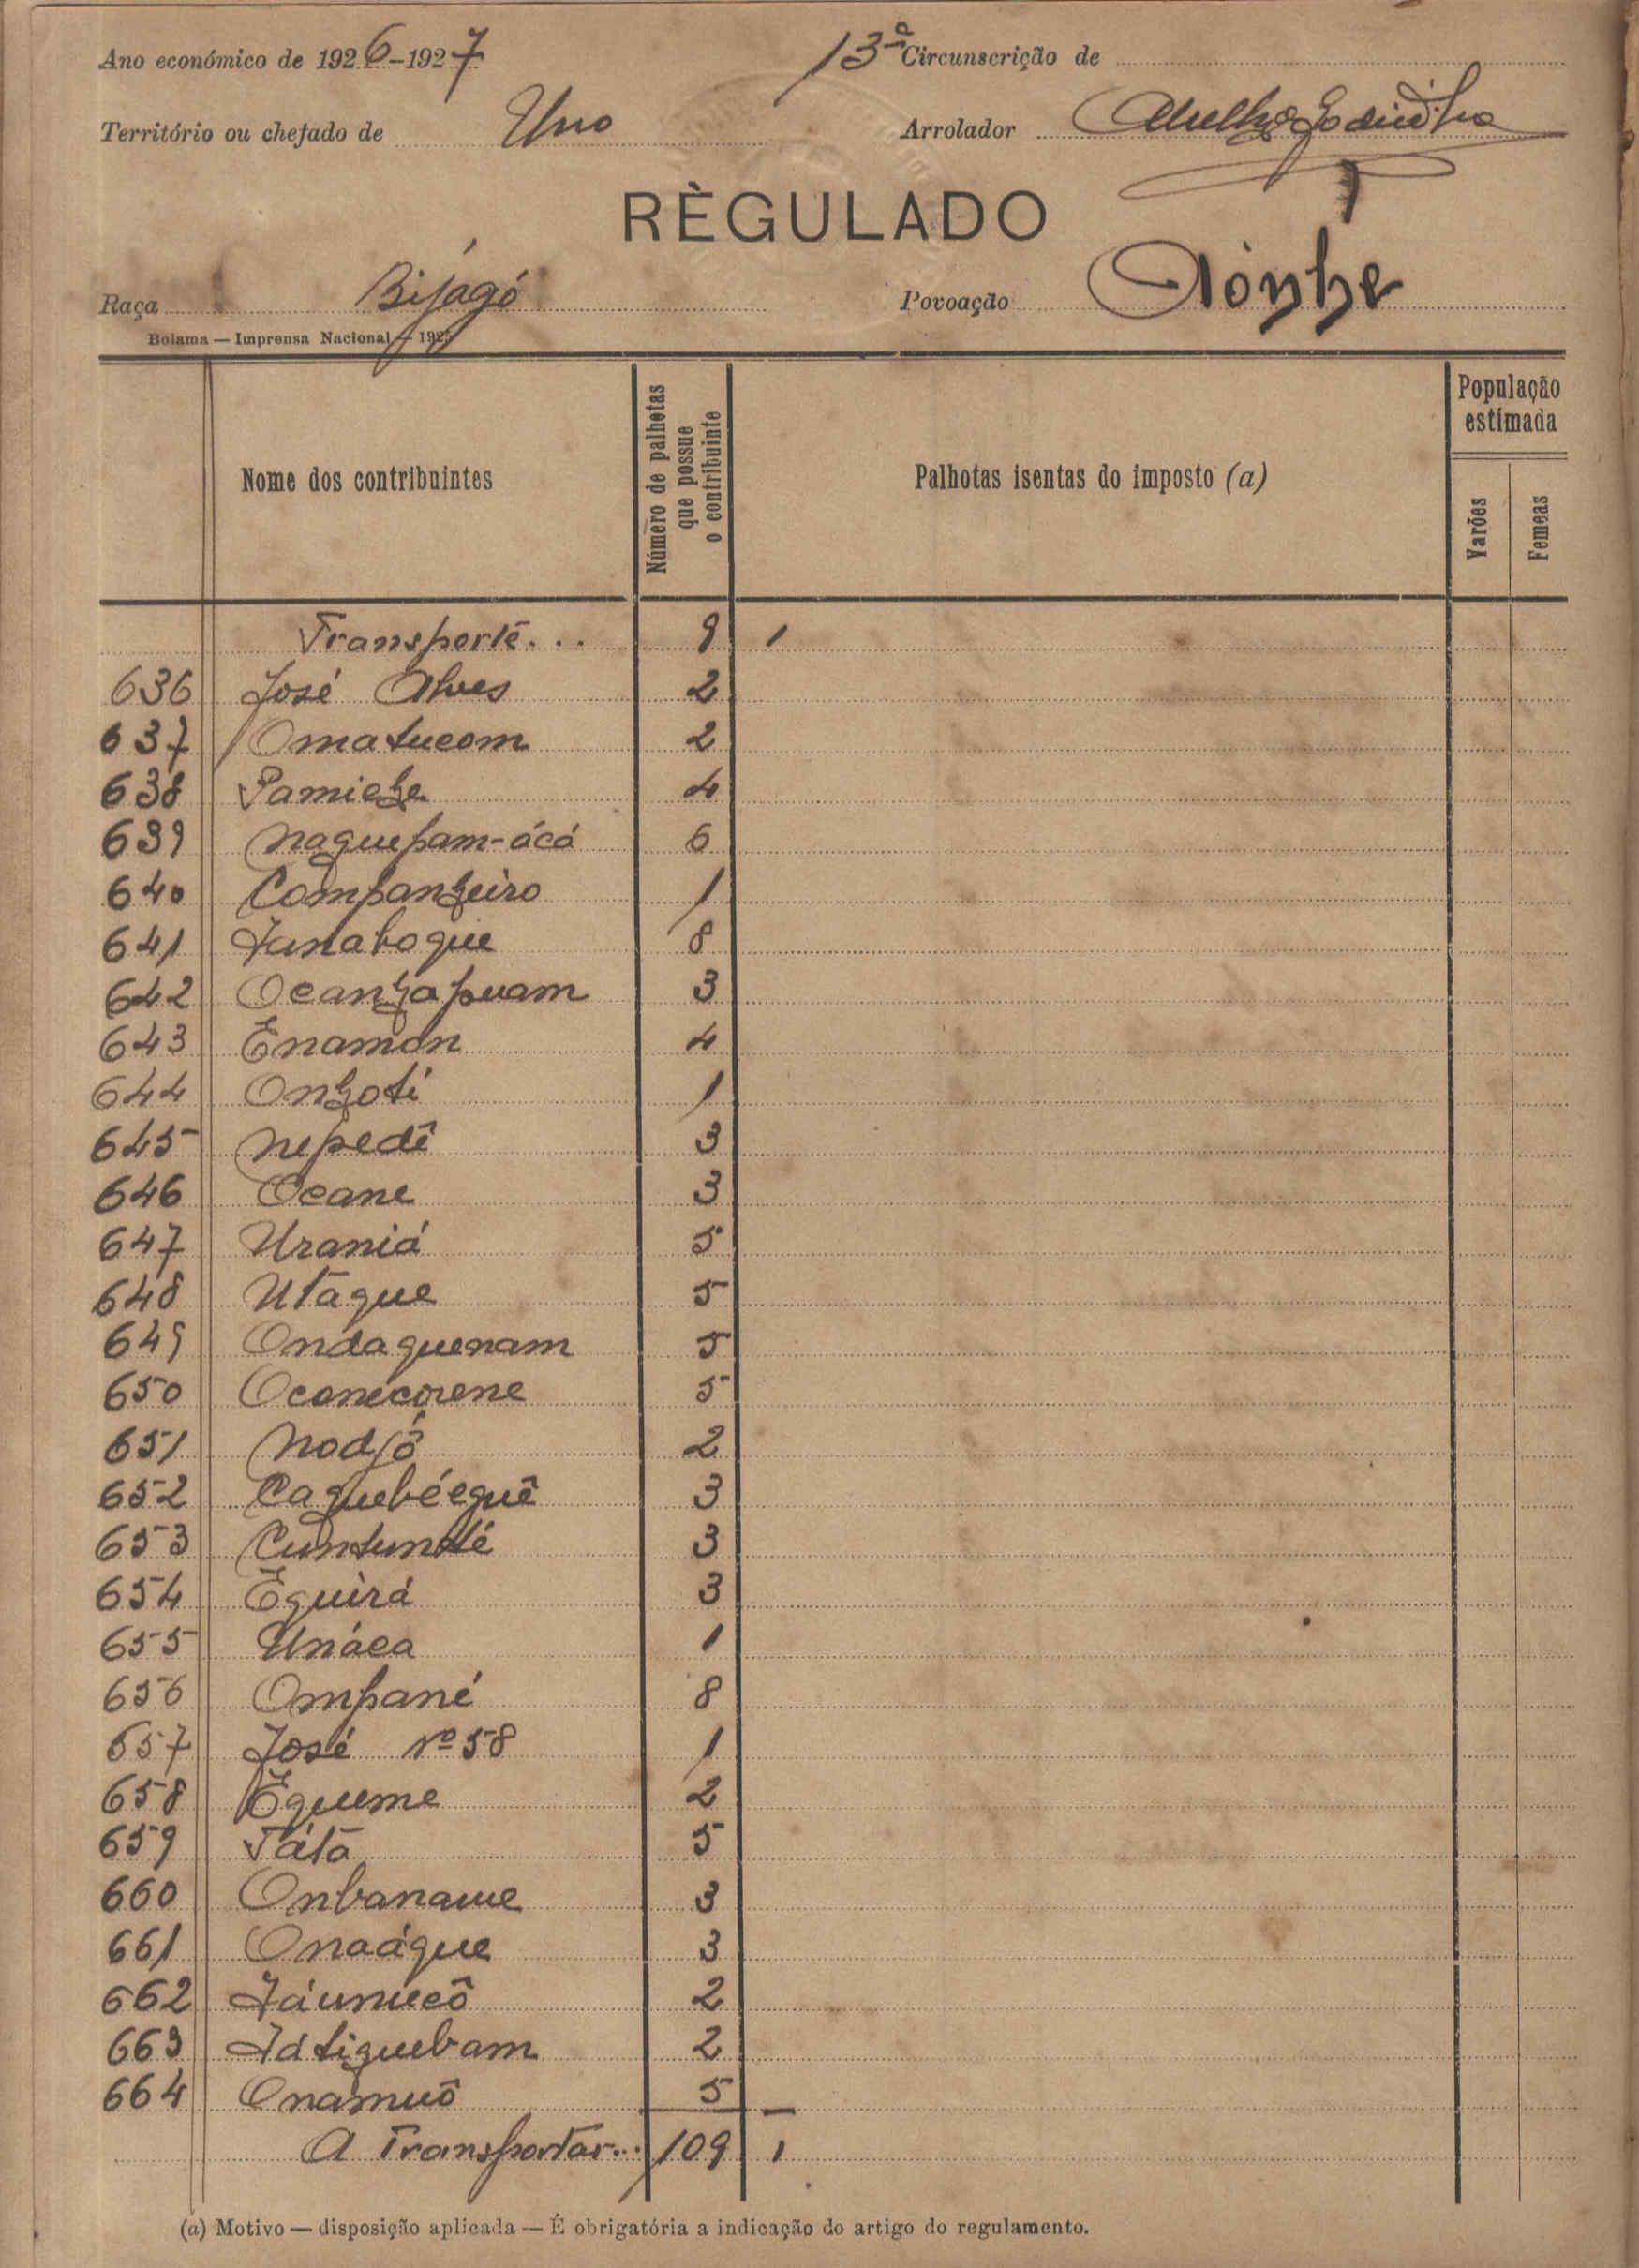 Ano económico de 1926-1927 13ª Circunscrição de
Território ou chefado de Uno Arrolador
RÈGULADO
Raça Bijagó Povoação
Bolama — Imprensa Nacional — 1925
Nome dos contribuintes
Número de palhotas que possue o contribuinte
Palhotas isentas do imposto (a)
População estimada
Varões
Femeas
Transporte... 9 1
636 José Alves 2
637 Omatucom 2
638 Pamiche 4
639 Naquepam-ácá 6
640 Companheiro 1
641 Junaboque 8
642 Ocanhapuam 3
643 Enamon 4
644 Onhoti 1
645 Nepedê 3
646 Ocane 3
647 Uraniá 5
648 Utaque 5
649 Ondaquenam 5
650 Oconecorene 5
651 Nodjô 2
652 Caquebéequê 3
653 3
654 Equirá 3
655 Unáca 1
656 Ompané 8
657 José nº 58 1
658 Equeme 2
659 Táta 5
660 Onbaname 3
661 Onaáque 3
662 2
663 Játiquebam 2
664 Onamuô 5
A Transportar... 109 1
(a) Motivo — disposição aplicada — É obrigatória a indicação do artigo do regulamento.